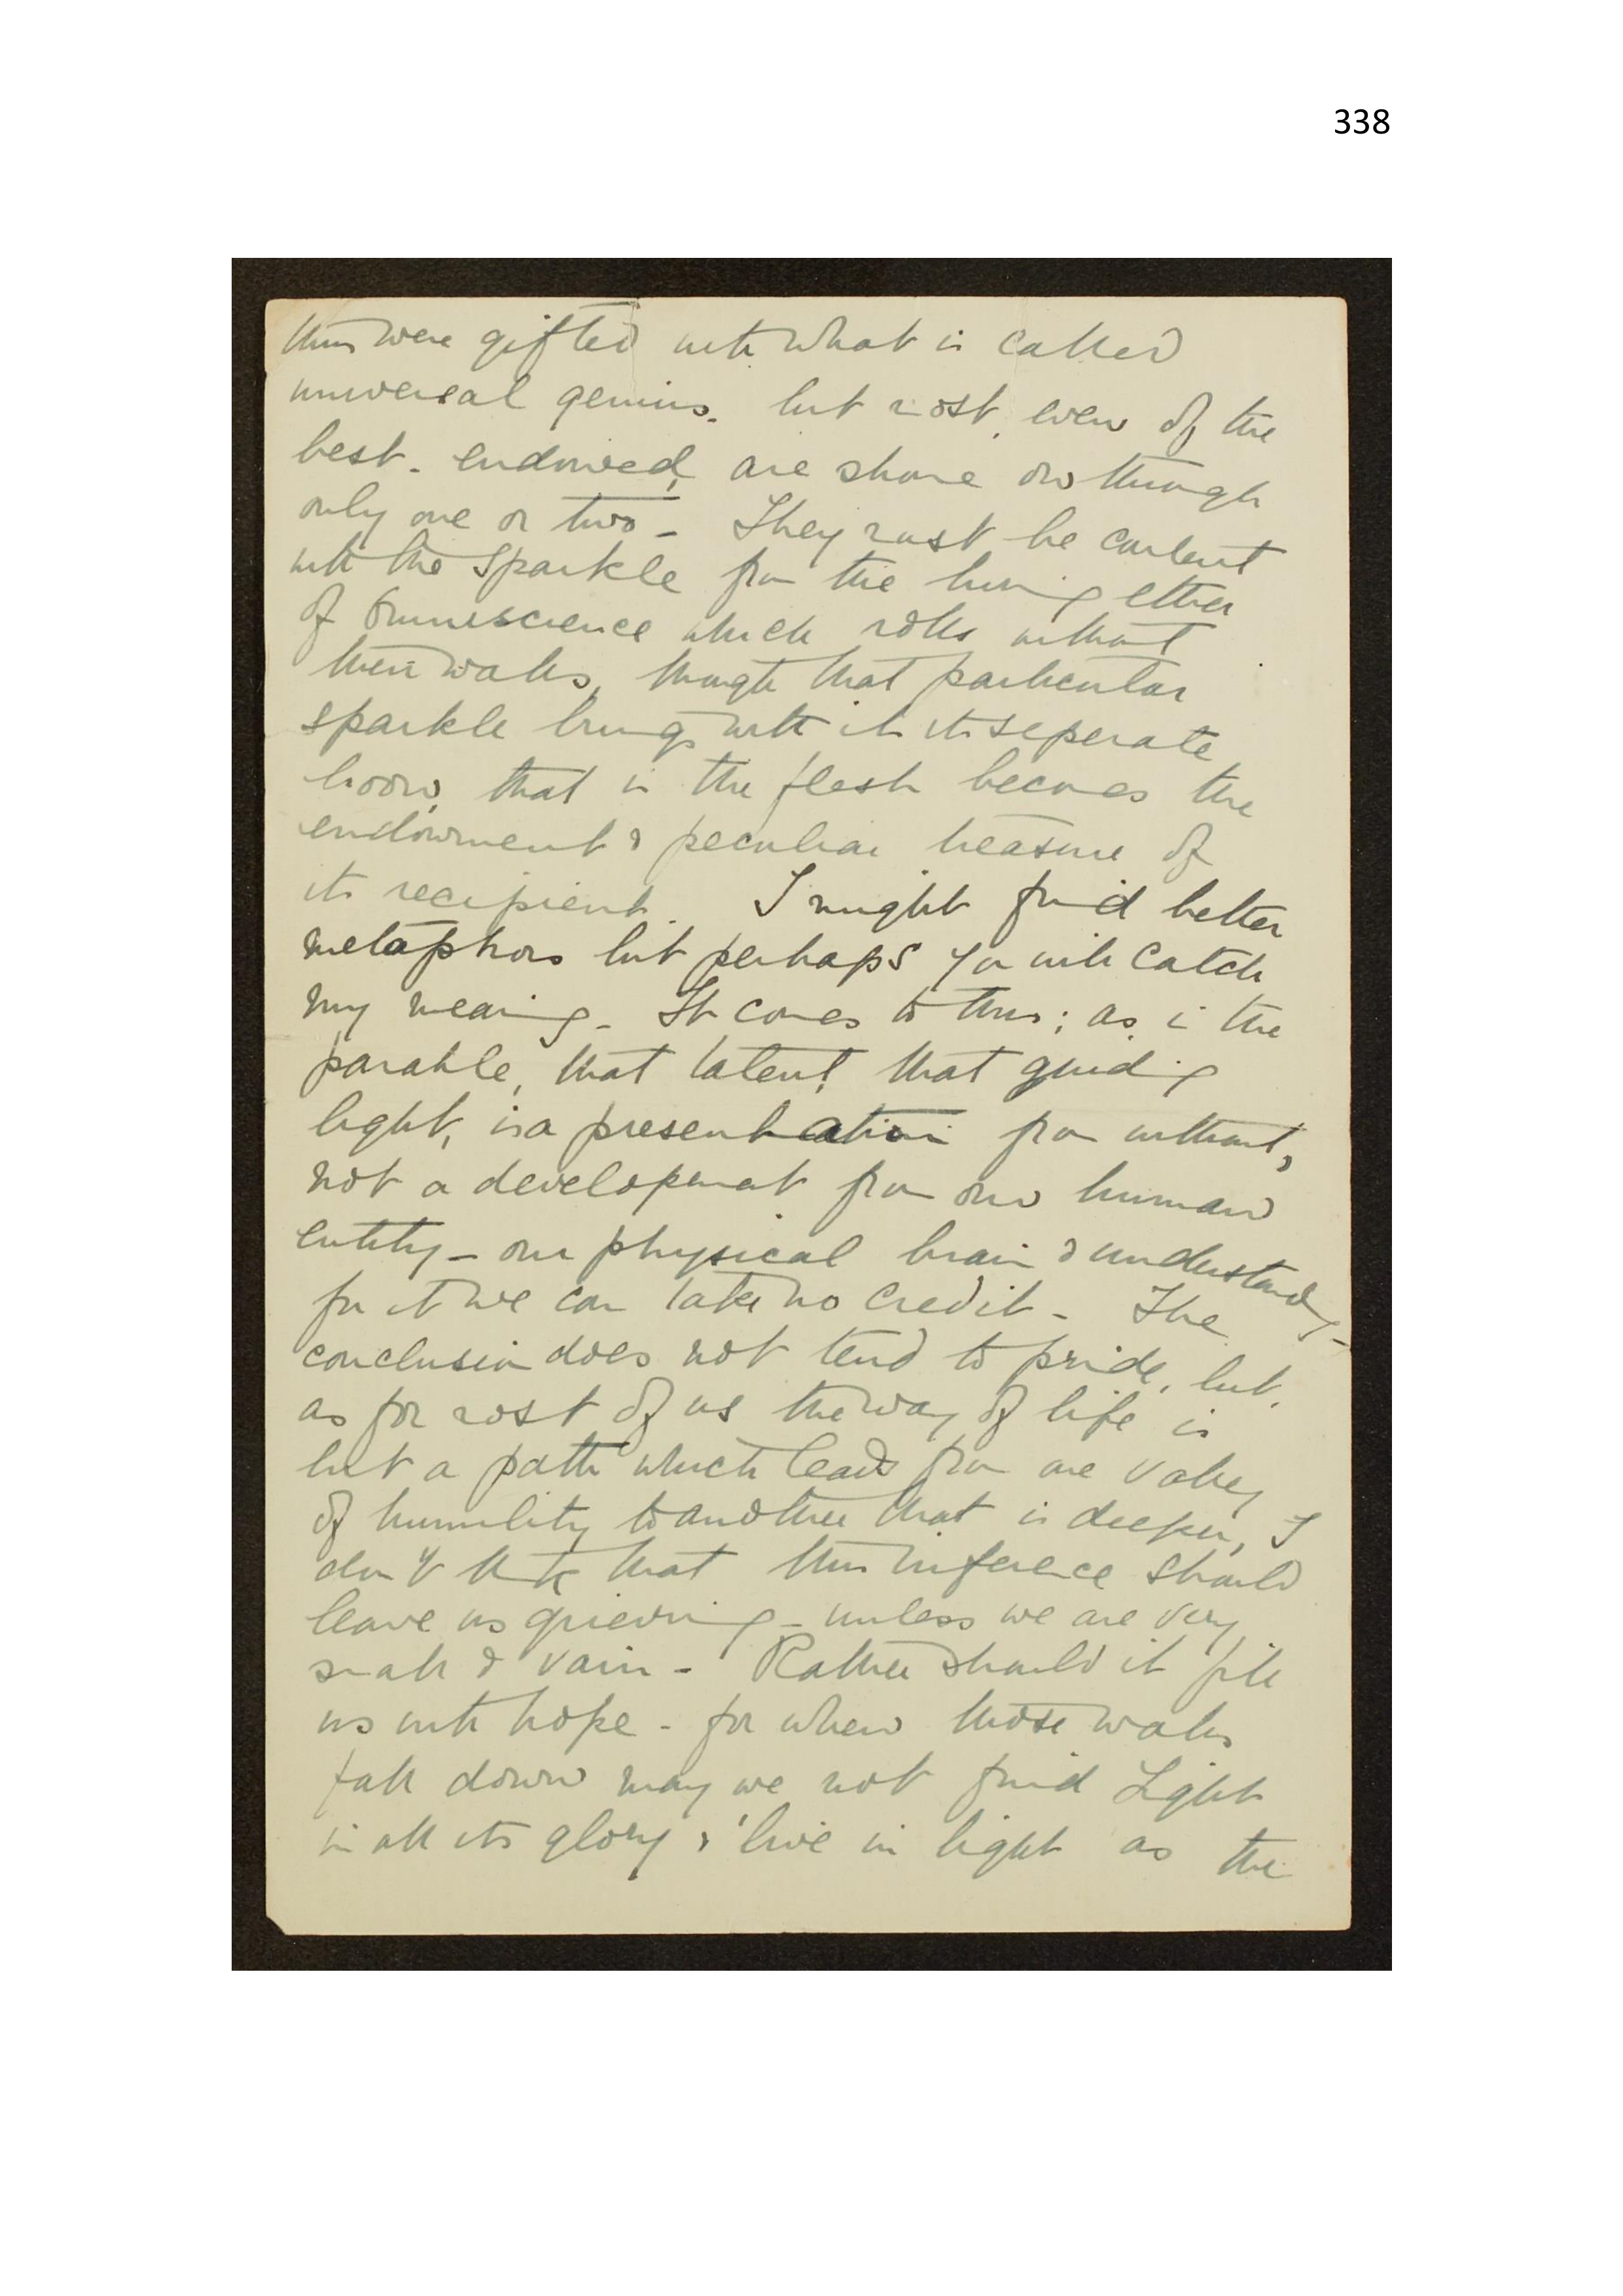 338
thus were gifted with what is called
universal genius. but most, even of the
best-endowed, are shone on through
only one or two – They must be content
with the sparkle from the living ether
of Omniscience which rolls without
their walls, though that particular
sparkle brings with it its seperate
boon, that in the flesh becomes the
endowment & peculiar treasure of
its recipient. I might find better
metaphors but perhaps you will catch
my meaning – It comes to this; as in the
parable, that talent, that guiding
light, is a presentation from without,
not a development from our human
entity – our physical brain & understanding –
for it we can take no credit – The
conclusion does not tend to pride, but,
as for most of us the way of life is
but a path which leads from one valley
of humility to another that is deeper, I
don't think that this inference should
leave us grieving – unless we are very
small & vain – Rather should it fill
us with hope – for when those walls
fall down may we not find Light
in all its glory & 'live in light as the